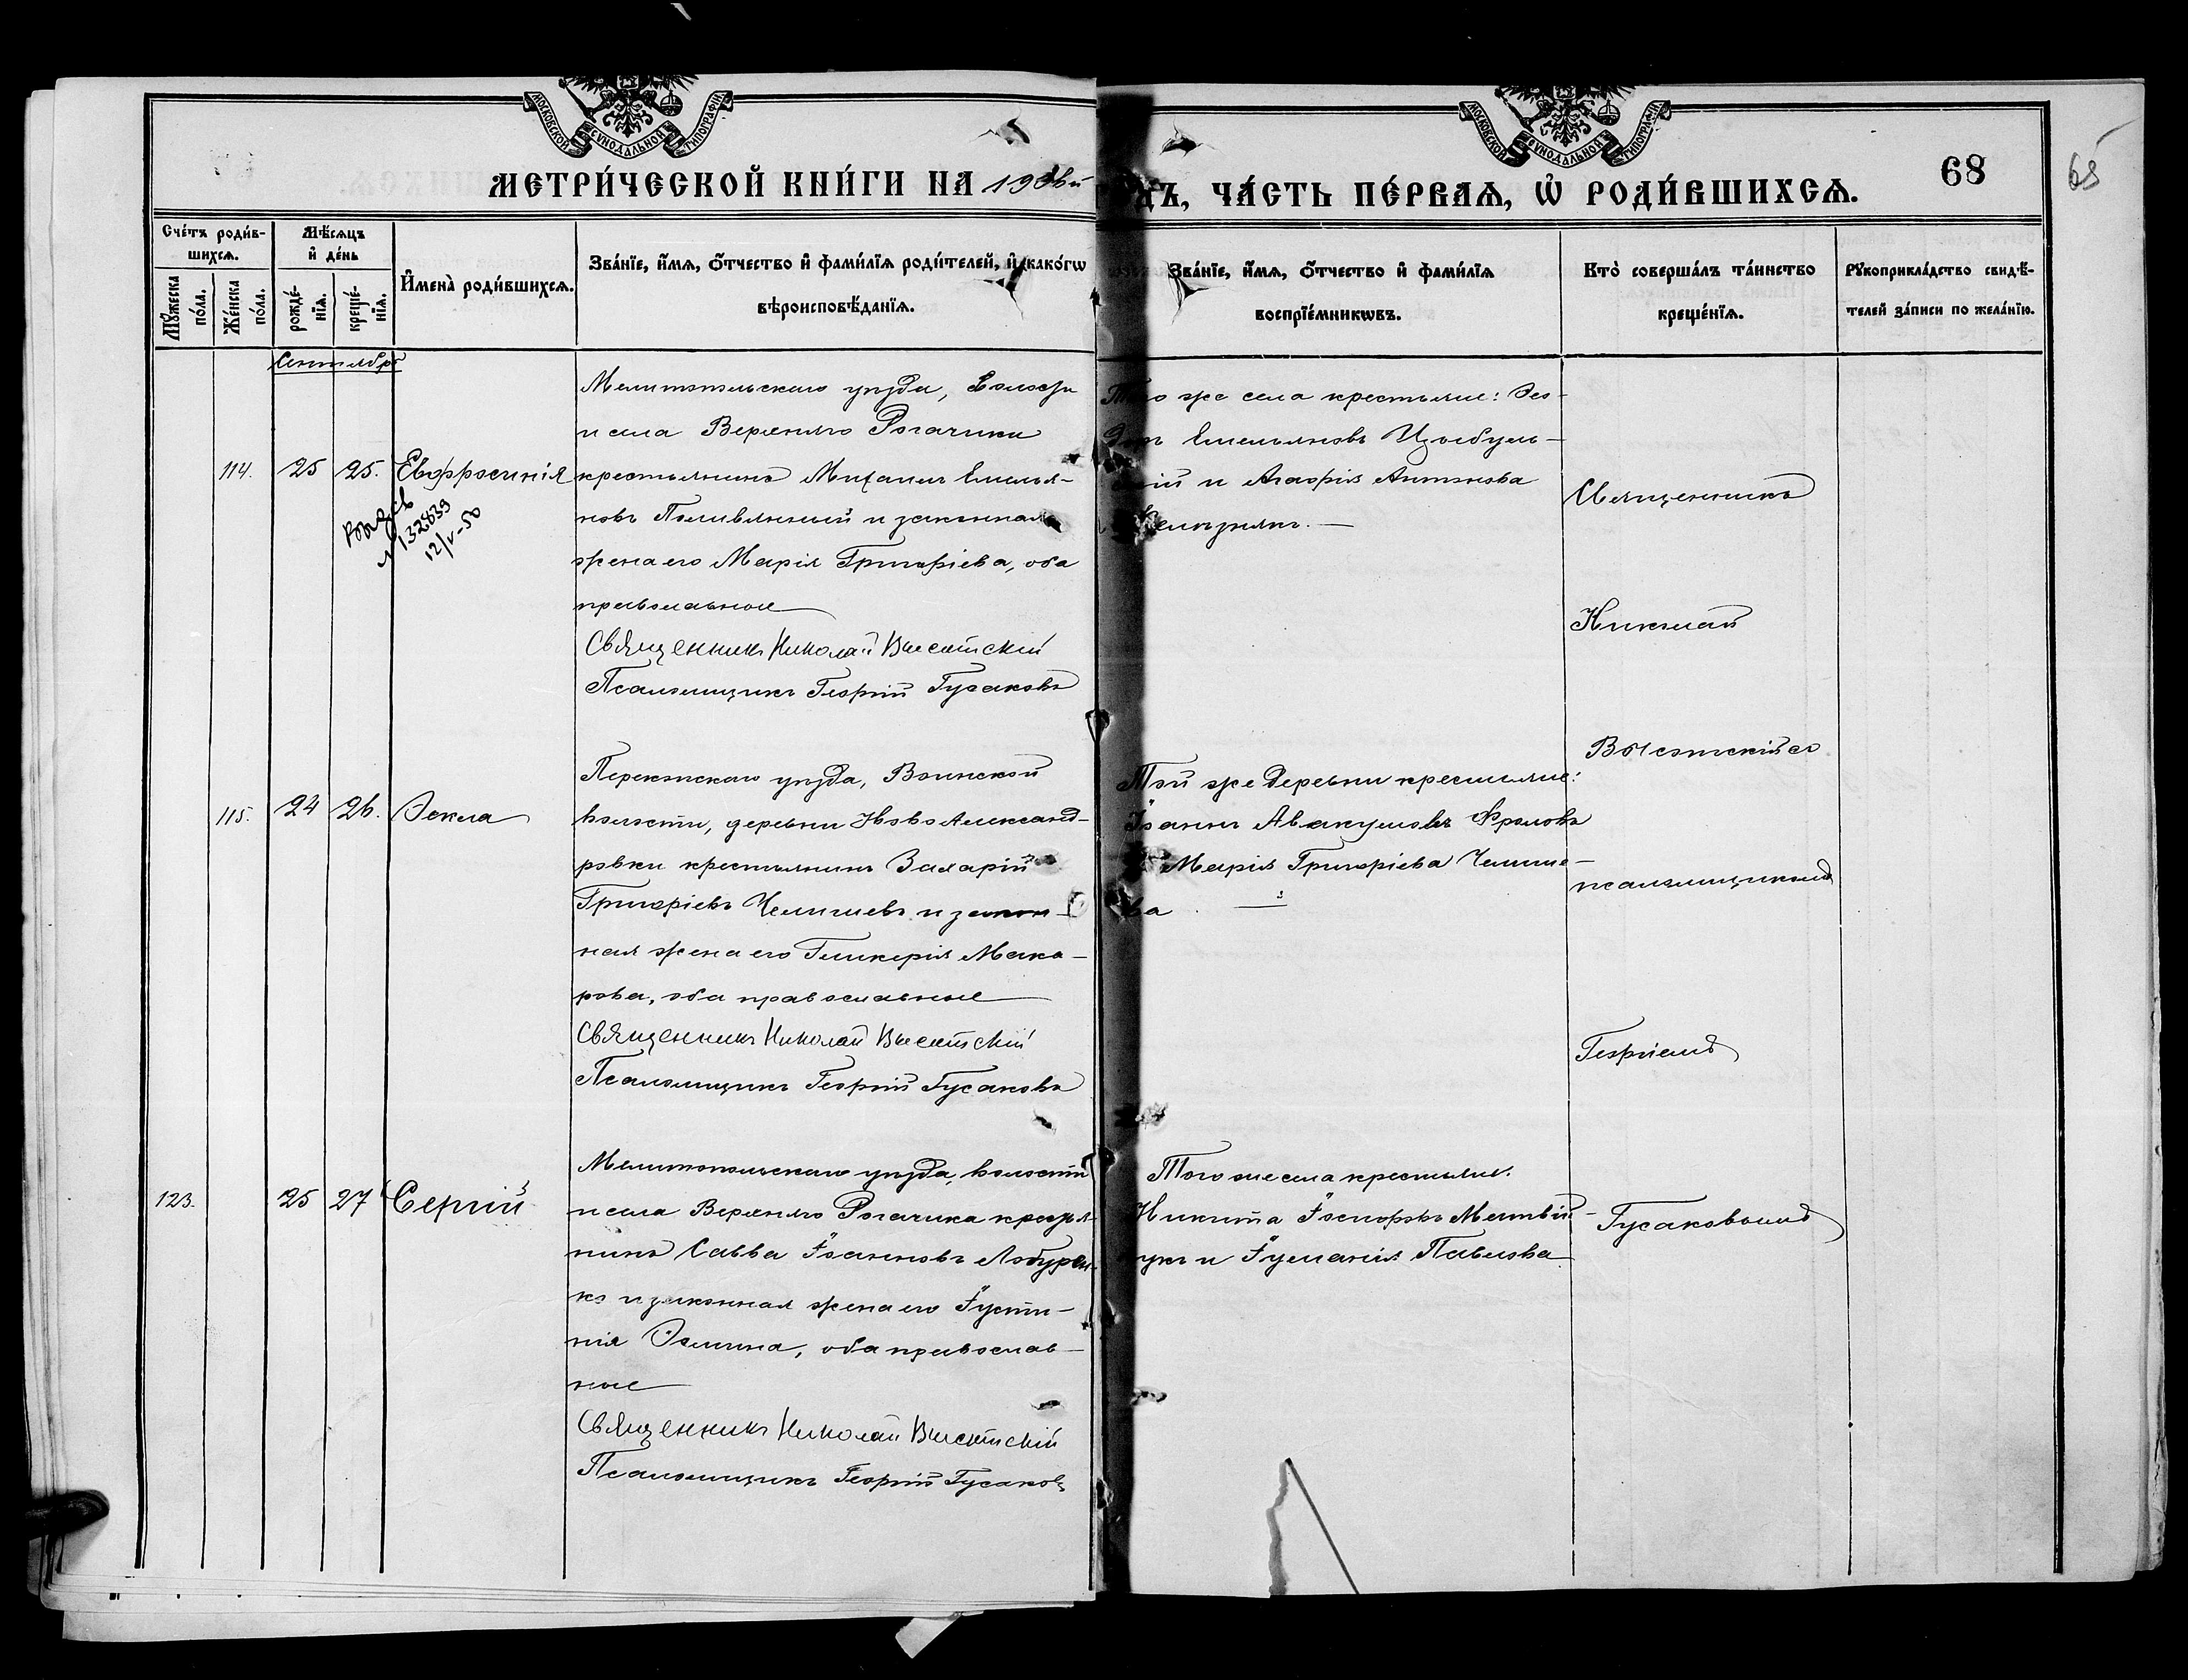 МОСКОВСКОЙ СѴНОДАЛЬНОЙ ТИПОГРАФІИ
МОСКОВСКОЙ СѴНОДАЛЬНОЙ ТИПОГРАФІИ
МЕТРИ́ЧЕСКОЙ КНИ́ГИ НА 190
ДЪ, ЧА́СТЬ ПЕ́РВАѦ, Ѡ РОДИ́ВШИХСѦ.
68
68
Сче́тъ роди́в-
шихсѧ.
Мꙋ́жеска
по́ла.
Же́нска
по́ла.
Мѣ́сѧцъ
и де́нь
рожде́-
нїѧ.
креще́-
нїѧ.
Имена̀ роди́вшихсѧ.
Зва́нїе, и́мѧ, ѻ́тчество и фами́лїѧ роди́телей, и како́гѡ
вѣроисповѣ́данїѧ.
Зва́нїе, и́мѧ, ѻ́тчество и фами́лїѧ
воспрїе́мникѡвъ.
Кто̀ соверша́лъ та́инство
креще́нїѧ.
Рꙋкоприкла́дство свидѣ́-
телей за́писи по жела́нїю.
Сентябрь
114.
25
25.
Евфросинія
132839
12/V-50
Мелитопольскаго уѣзда, волости
и села Верхняго Рогачика
крестьянинъ Михаилъ Емелья-
новъ Поливянный и законная
жена его Марія Григоріева, оба
православные
Священникъ Николай Высотскій
Псаломщикъ Георгій Гусаковъ
Того же села крестьяне: Ѳео-
Емельяновъ Цыбуль-
скій и Агафія Антонова
Священникъ
Николай
Высотскій съ
псаломщикомъ
Георгіемъ
Гусаковымъ
115.
24
26.
Ѳекла
Перекопскаго уѣзда, Воинской
волости, деревни Ново Александ-
ровки крестьянинъ Захарій
Григоріевъ Челышевъ и закон-
ная жена его Гликерія Мака-
рова, оба православные
Священникъ Николай Высотскій
Псаломщикъ Георгій Гусаковъ
Той же деревни крестьяне:
Іоаннъ Авакумовъ Фроловъ
Марія Григоріева Челыше-
ва
123.
25
27
Сергій
Мелитопольскаго уѣзда, волости
и села Верхняго Рогачика крестья-
нинъ Савва Іоанновъ Лобурен-
ко и законная жена его Іусти-
нія Ѳомина, оба православ-
ные
Священникъ Николай Высотскій
Псаломщикъ Георгій Гусаковъ
Того же села крестьяне:
Никита Іосифовъ Матвій-
чукъ и Іуліанія Павлова